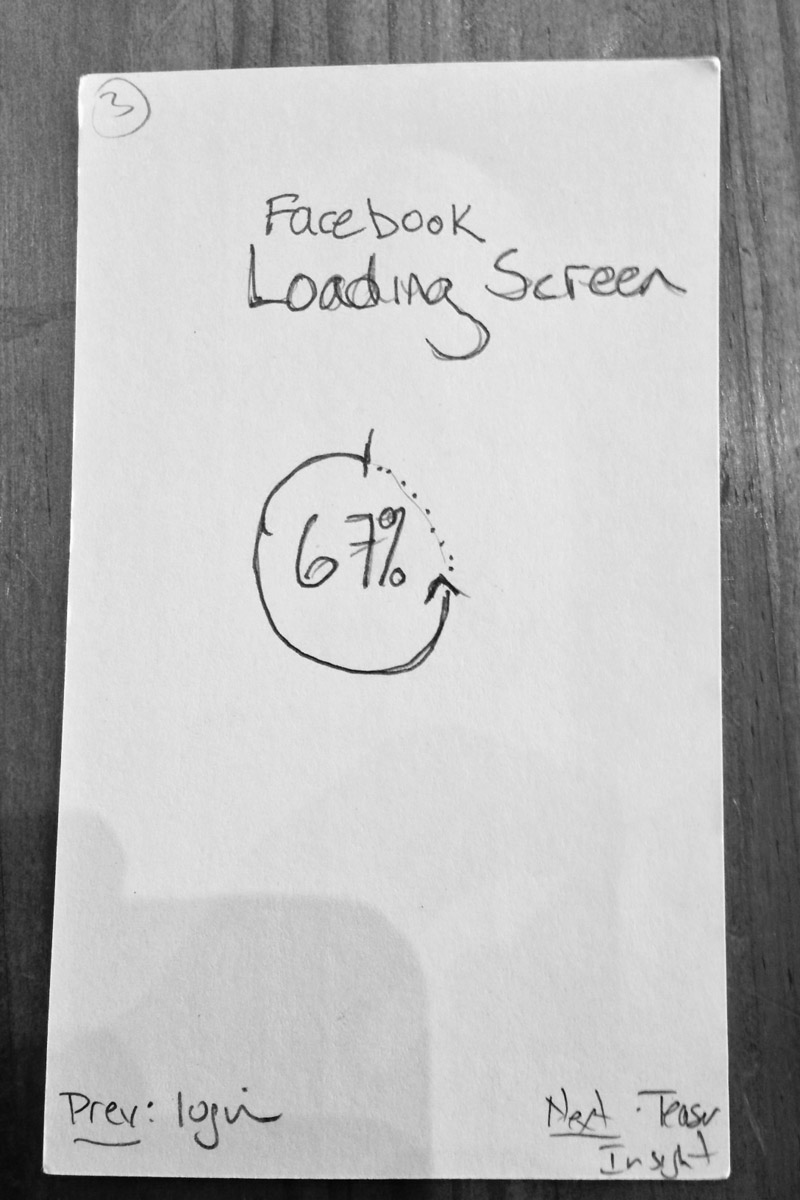 3
Facebook
Loading Screen
67%
Prev: login
Next · Teaser
Insight